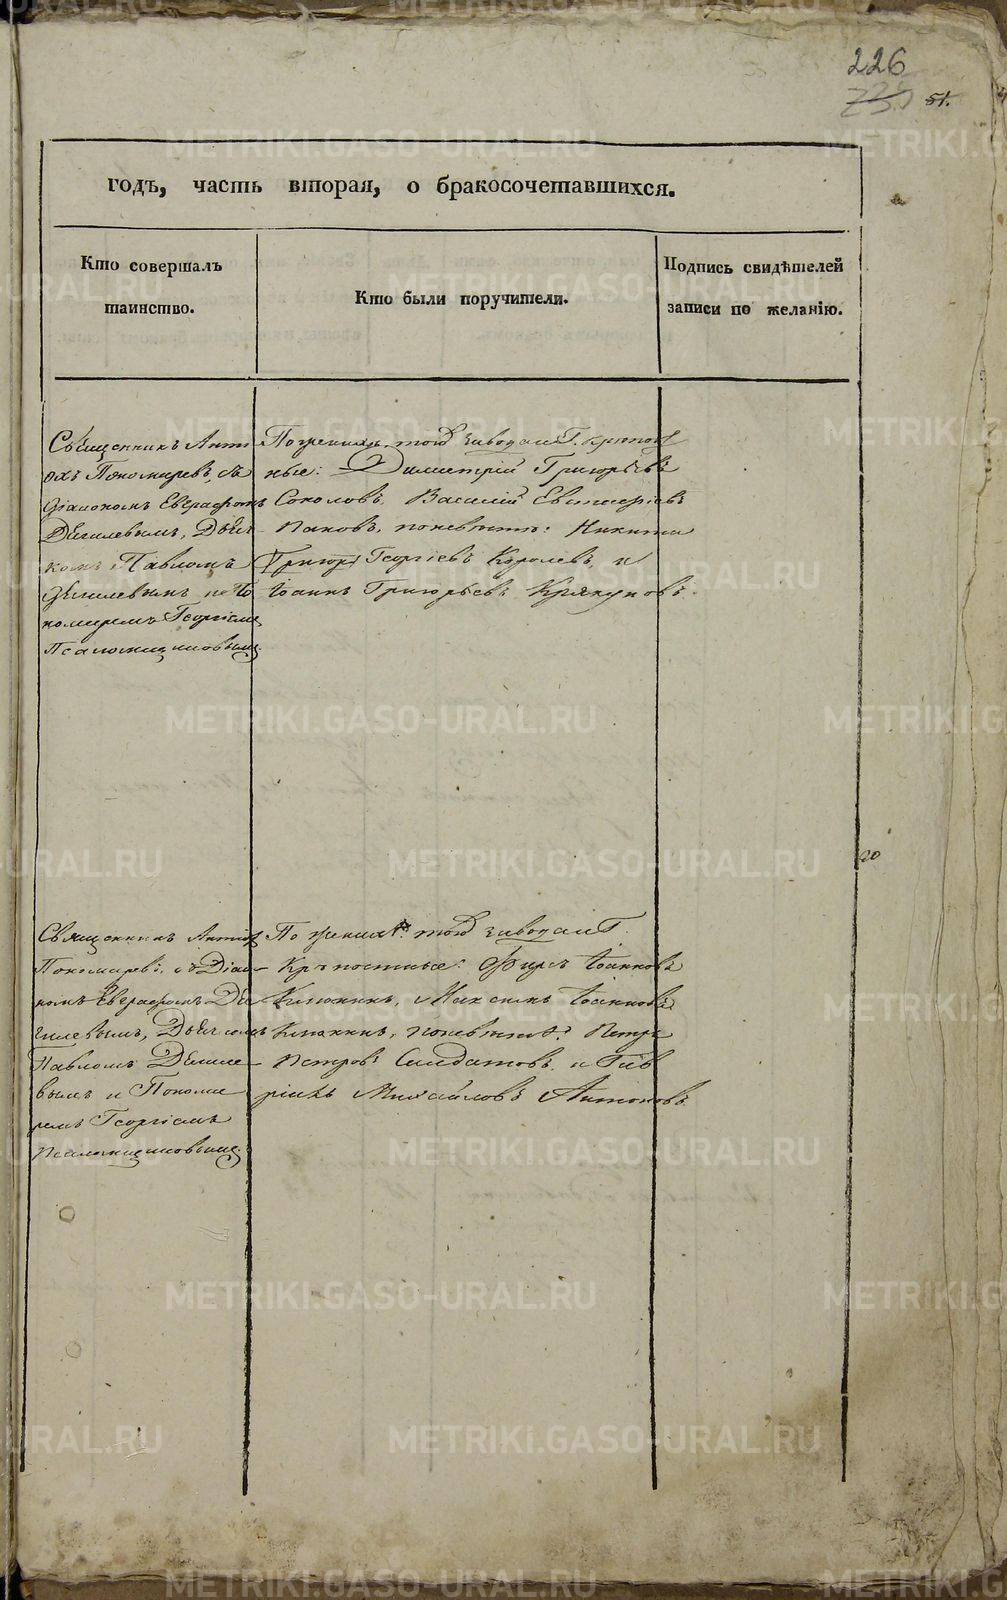 226
51.
годъ, часть вторая, о бракосочетавшихся.
Кто совершалъ
таинство.
Кто были поручители.
Подпись свидѣтелей
записи по желанію.
Священникъ Анти
охъ Пономаревъ, съ
Діакономъ Евграфомъ
Дягилевымъ, Дьяч
комъ Павломъ
Дягилевымъ и По
номаремъ Георгіемъ
Псаломщиковымъ.
По женихѣ тогожъ завода Г. крѣпост
ные: Димитрій Григорьевъ
Соколовъ, Василій Евстафіевъ
Пановъ, по невѣстѣ: Никита
Георгіевъ Королевъ, и
Іоаннъ Григорьевъ Крякуновъ.
20
Священникъ Антіохъ
Пономаревъ, съ Діако-
номъ Евграфомъ Дя
гилевымъ, Дьячкомъ
Павломъ Дягиле-
вымъ и Понома
ремъ Георгіемъ
Псаломщиковымъ.
По женихѣ: тогожъ завода Г.
Крѣпостные: Фирсъ Іоанновъ
Максимъ Іоанновъ
по невѣстѣ: Петръ
Петровъ Солдатовъ, и Гав
ріилъ Михайловъ Антоновъ.
METRIKI.GASO-URAL.RU